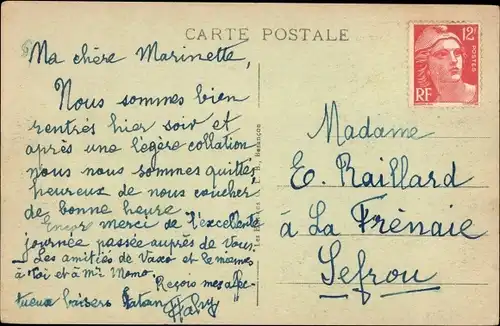 CARTE POSTALE
12F
POSTES
RF
Ma chère Marinette,
Nous sommes bien
rentrés hier soir et
après une légère collation
nous nous sommes quittés
heureux de nous coucher
de bonne heure
Encore merci de l'excellente
journée passée auprès de vous.
Les amitiés de et le
à Toi et à Mr Momo.
Reçois mes affec-
tueux baisers
Madame
E. Raillard
à La Frênaie
Sefrou
Besançon